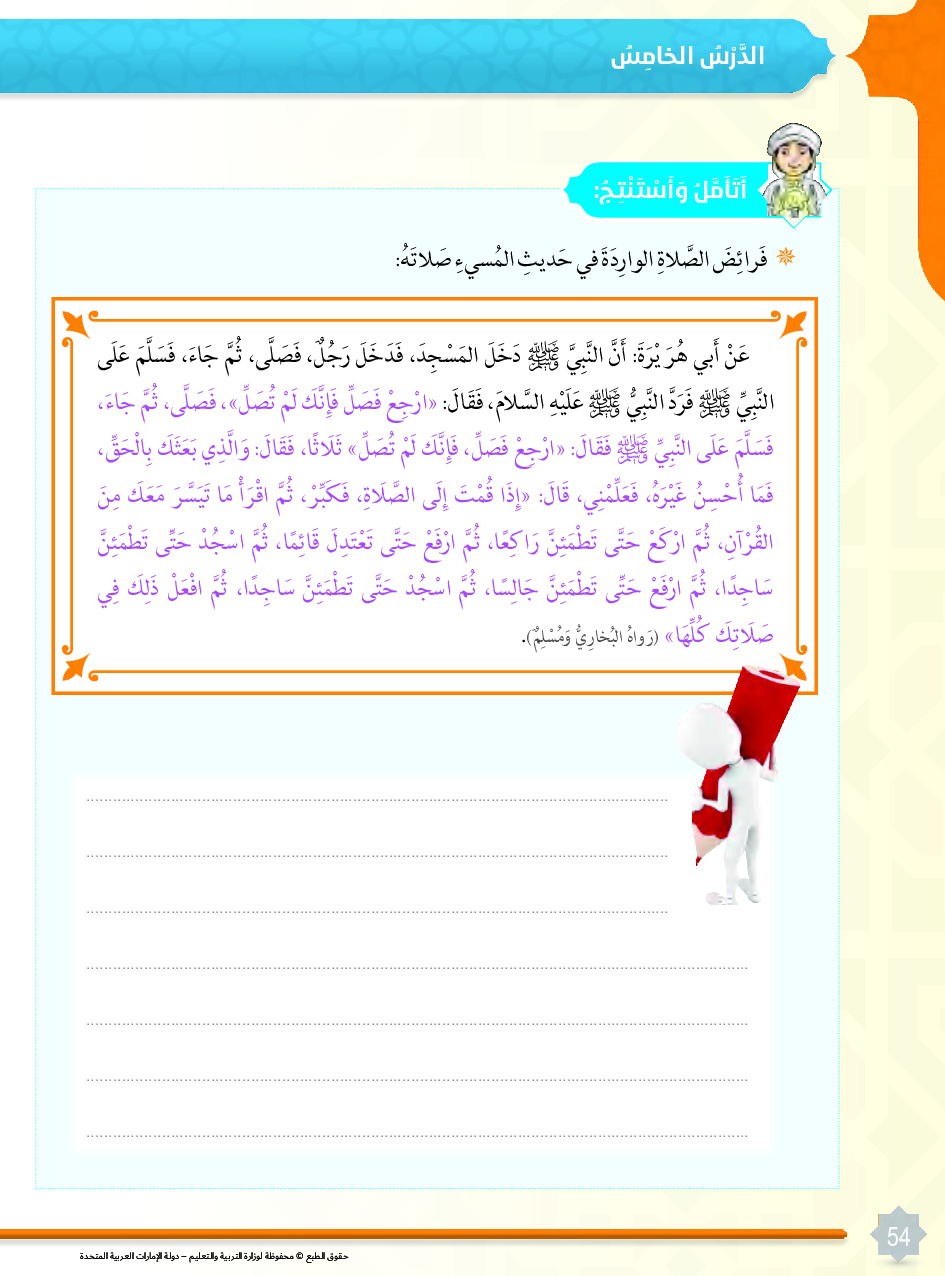 الدَّرْسُ الخامِسُ
أَتَأَمَّلُ وَأَسْتَنْتِجُ:
فَرائِضَ الصَّلاةِ الوارِدَةَ في حَديثِ المُسيءِ صَلاتَهُ:
عَنْ أَبي هُرَيْرَةَ: أَنَّ النَّبِيَّ ﷺ دَخَلَ المَسْجِدَ، فَدَخَلَ رَجُلٌ، فَصَلَّى، ثُمَّ جَاءَ، فَسَلَّمَ عَلَى
النَّبِيِّ ﷺ فَرَدَّ النَّبِيُّ ﷺ عَلَيْهِ السَّلامَ، فَقَالَ: «ارْجِعْ فَصَلِّ فَإِنَّكَ لَمْ تُصَلِّ»، فَصَلَّى، ثُمَّ جَاءَ،
فَسَلَّمَ عَلَى النَّبِيِّ ﷺ فَقَالَ: «ارْجِعْ فَصَلِّ، فَإِنَّكَ لَمْ تُصَلِّ» ثَلَاثًا، فَقَالَ: وَالَّذِي بَعَثَكَ بِالْحَقِّ،
فَمَا أُحْسِنُ غَيْرَهُ، فَعَلِّمْنِي، قَالَ: «إِذَا قُمْتَ إِلَى الصَّلَاةِ، فَكَبِّرْ، ثُمَّ اقْرَأْ مَا تَيَسَّرَ مَعَكَ مِنَ
القُرْآنِ، ثُمَّ ارْكَعْ حَتَّى تَطْمَئِنَّ رَاكِعًا، ثُمَّ ارْفَعْ حَتَّى تَعْتَدِلَ قَائِمًا، ثُمَّ اسْجُدْ حَتَّى تَطْمَئِنَّ
سَاجِدًا، ثُمَّ ارْفَعْ حَتَّى تَطْمَئِنَّ جَالِسًا، ثُمَّ اسْجُدْ حَتَّى تَطْمَئِنَّ سَاجِدًا، ثُمَّ افْعَلْ ذَلِكَ فِي
صَلَاتِكَ كُلِّهَا» (رَواهُ البُخارِيُّ وَمُسْلِمٌ).
54
حقوق الطبع © محفوظة لوزارة التربية والتعليم – دولة الإمارات العربية المتحدة